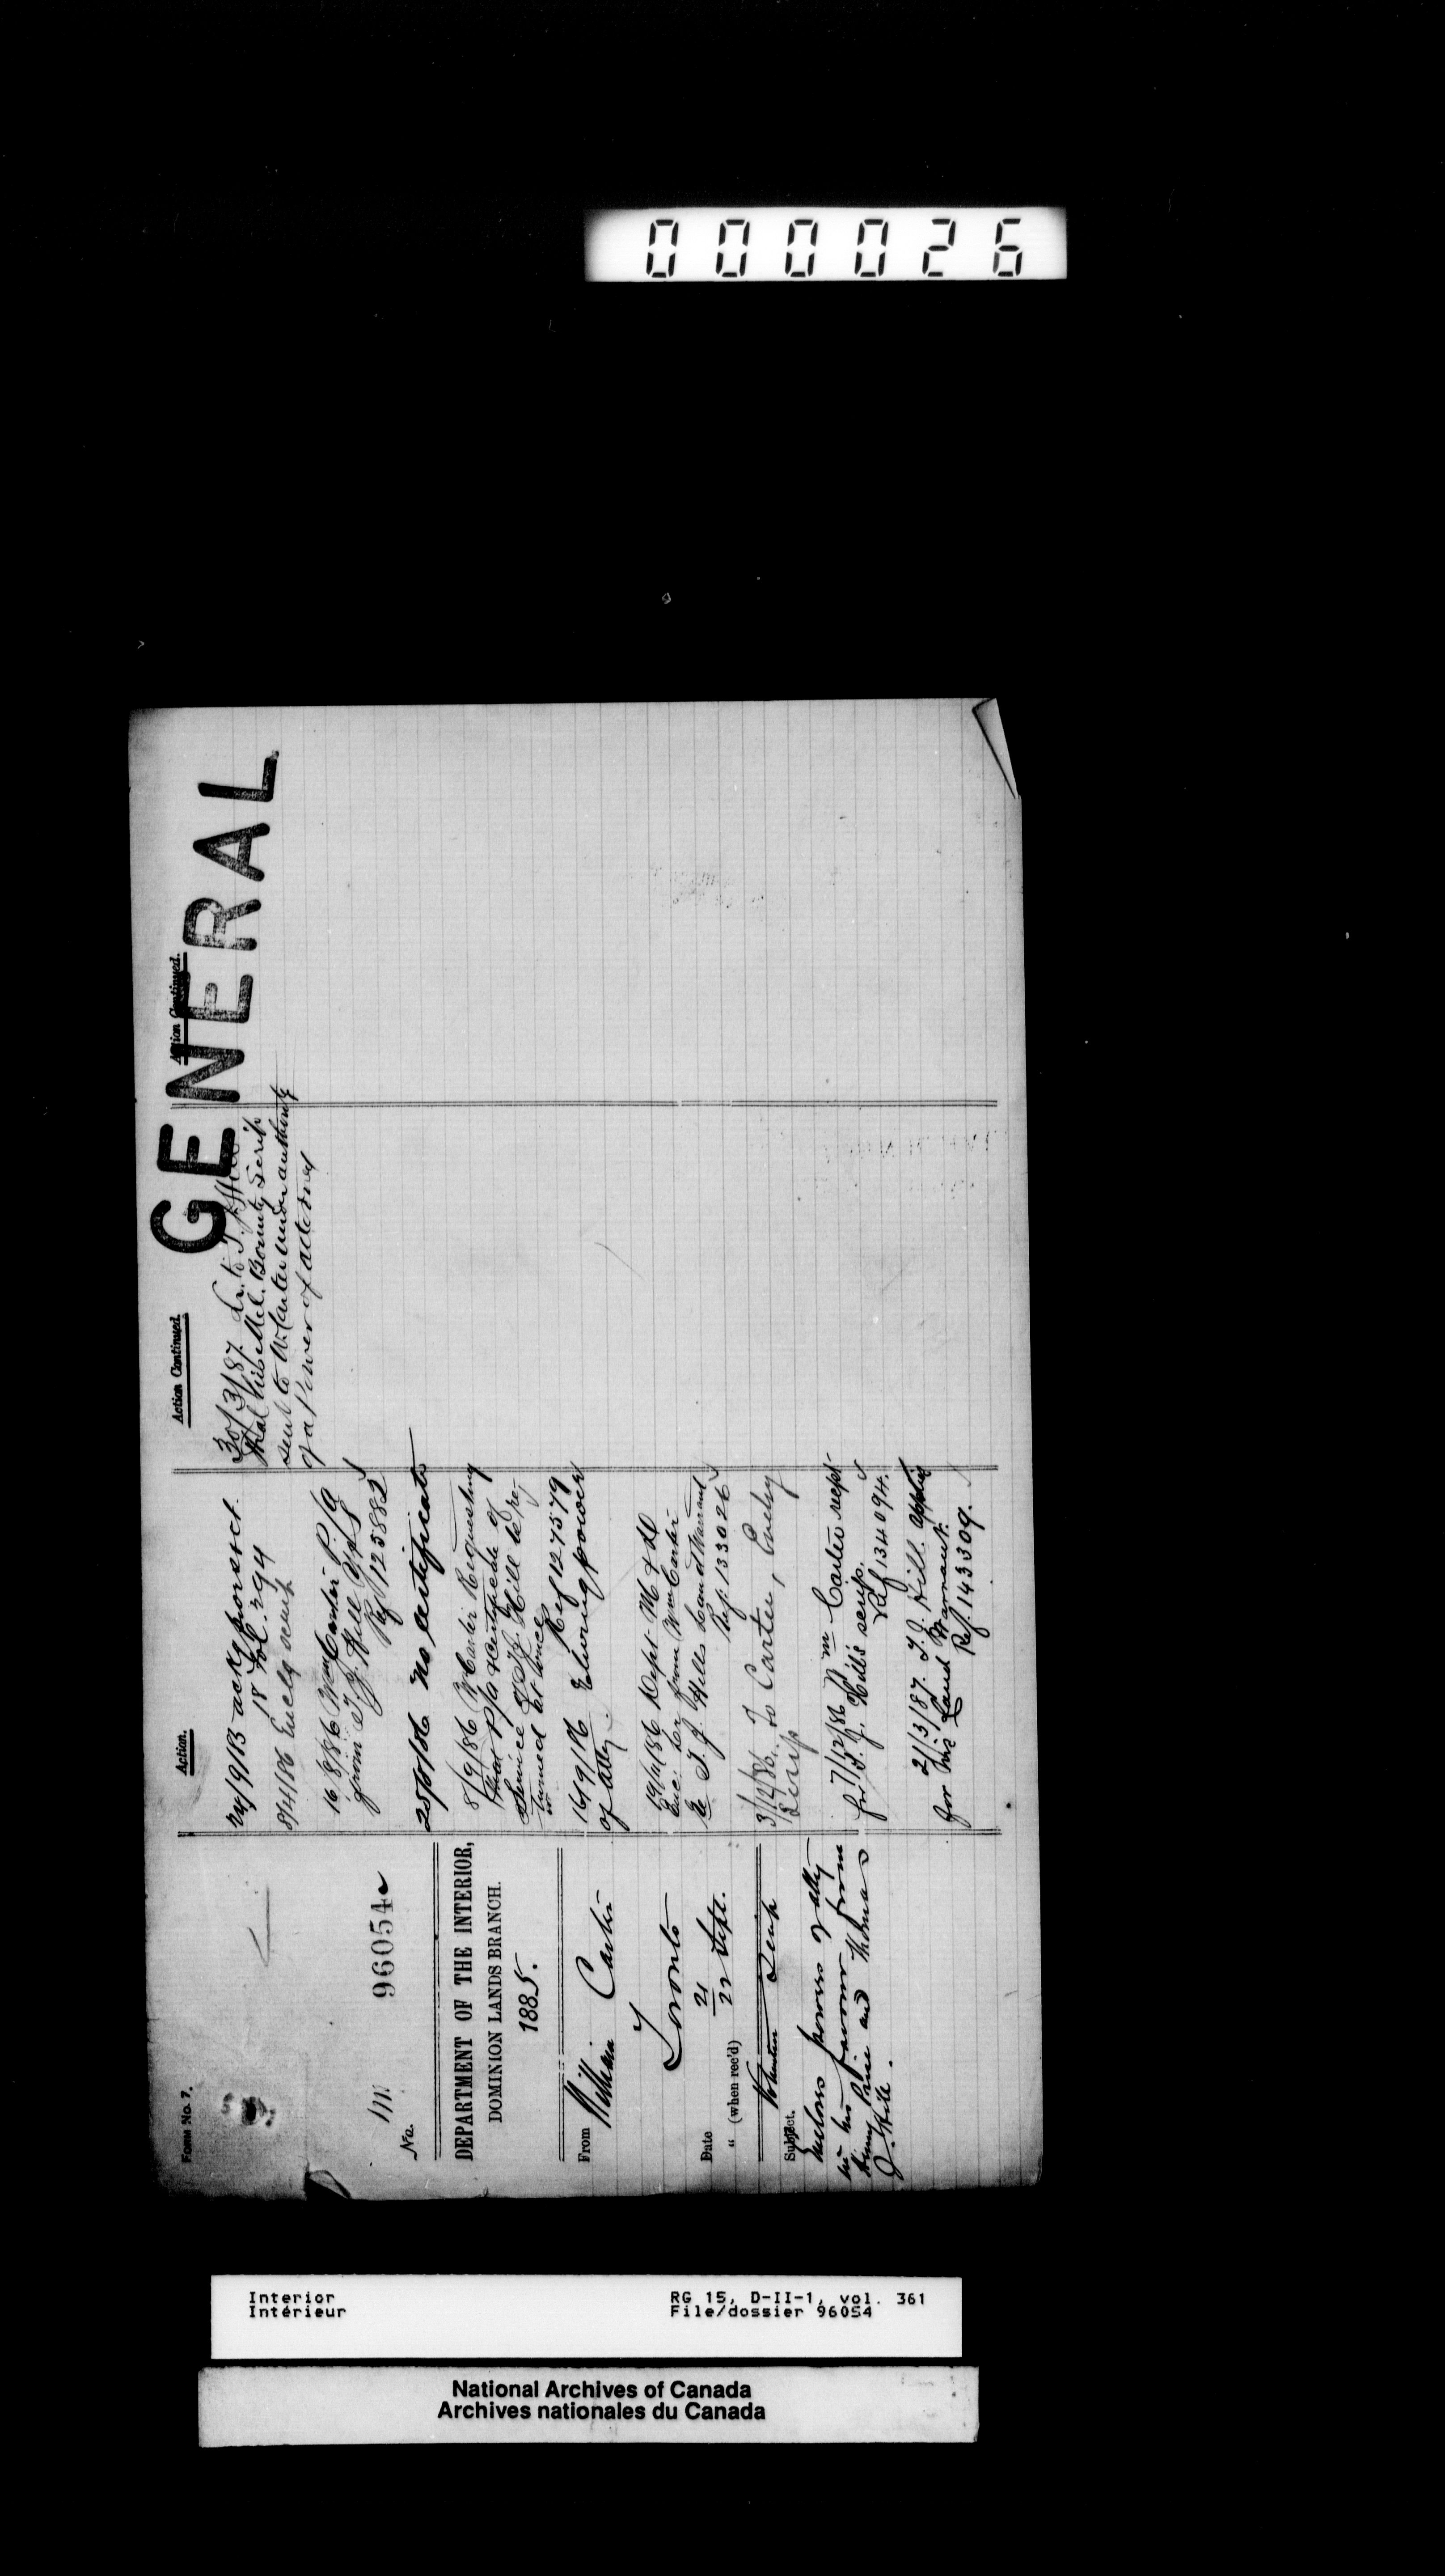 000026
FORM No. 7.
No. 96054
DEPARTMENT OF THE INTERIOR,
DOMINION LANDS BRANCH.
1885.
From William Carter
Toronto
Date 21
" (when rec'd) 22 Sept.
Subject. Volunteer Scrip
Encloses powers of atty
in his favour from
Henry and Thomas
J. Hill.
Action.
8/4/86 Encly scrip
16/8/86 Wm Carter P/A
from T. J. Hill
Ref 125882
25/8/86 No certificate
8/9/86 W Carter Requesting
that P/A & Certificate of
Service of T. J. Hill be re-
turned at once
Ref 127579
16/9/86 Encloing power
of atty.
19/11/86 Dept M & D
Enc: Lr from Wm Carter
re T. J. Hills Land Warrant
Ref: 133026
3/12/86. To Carter, Encly
Scrip
7/12/86 Wm Carter recpt
for T. J. Hill's scrip.
Ref 134094.
21/3/87. T. J. Hill. applies
for his Land Warrant.
Ref. 143309.
Action Continued.
30/3/87. Lr. to T. J. Hill
that his Mil. Bounty Scrip
sent to W. Carter under authority
of a Power of attorney
Action Continued.
GENERAL
Interior
Intérieur
RG 15, D-II-1, vol. 361
File/dossier 96054
National Archives of Canada
Archives nationales du Canada